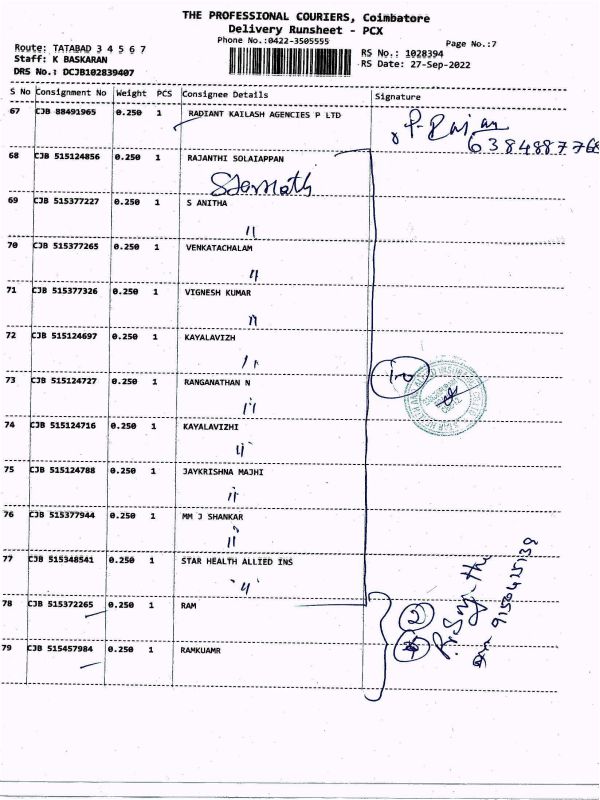 THE PROFESSIONAL COURIERS, Coimbatore
Delivery Runsheet - PCX
Phone No.:0422-3505555
Page No.:7
Route: TATABAD 3 4 5 6 7
Staff: K BASKARAN
DRS No.: DCJB102839407
RS No.: 1028394
RS Date: 27-Sep-2022
S No Consignment No Weight PCS Consignee Details Signature
67 CJB 88491965 0.250 1 RADIANT KAILASH AGENCIES P LTD
P. Rajan
6384887768
68 CJB 515124856 0.250 1 RAJANTHI SOLAIAPPAN
69 CJB 515377227 0.250 1 S ANITHA
"
70 CJB 515377265 0.250 1 VENKATACHALAM
"
71 CJB 515377326 0.250 1 VIGNESH KUMAR
"
72 CJB 515124697 0.250 1 KAYALAVIZH
"
73 CJB 515124727 0.250 1 RANGANATHAN N
"
74 CJB 515124716 0.250 1 KAYALAVIZHI
"
75 CJB 515124788 0.250 1 JAYKRISHNA MAJHI
"
76 CJB 515377944 0.250 1 MM J SHANKAR
"
77 CJB 515348541 0.250 1 STAR HEALTH ALLIED INS
"
78 CJB 515372265 0.250 1 RAM
2
79 CJB 515457984 0.250 1 RAMKUAMR